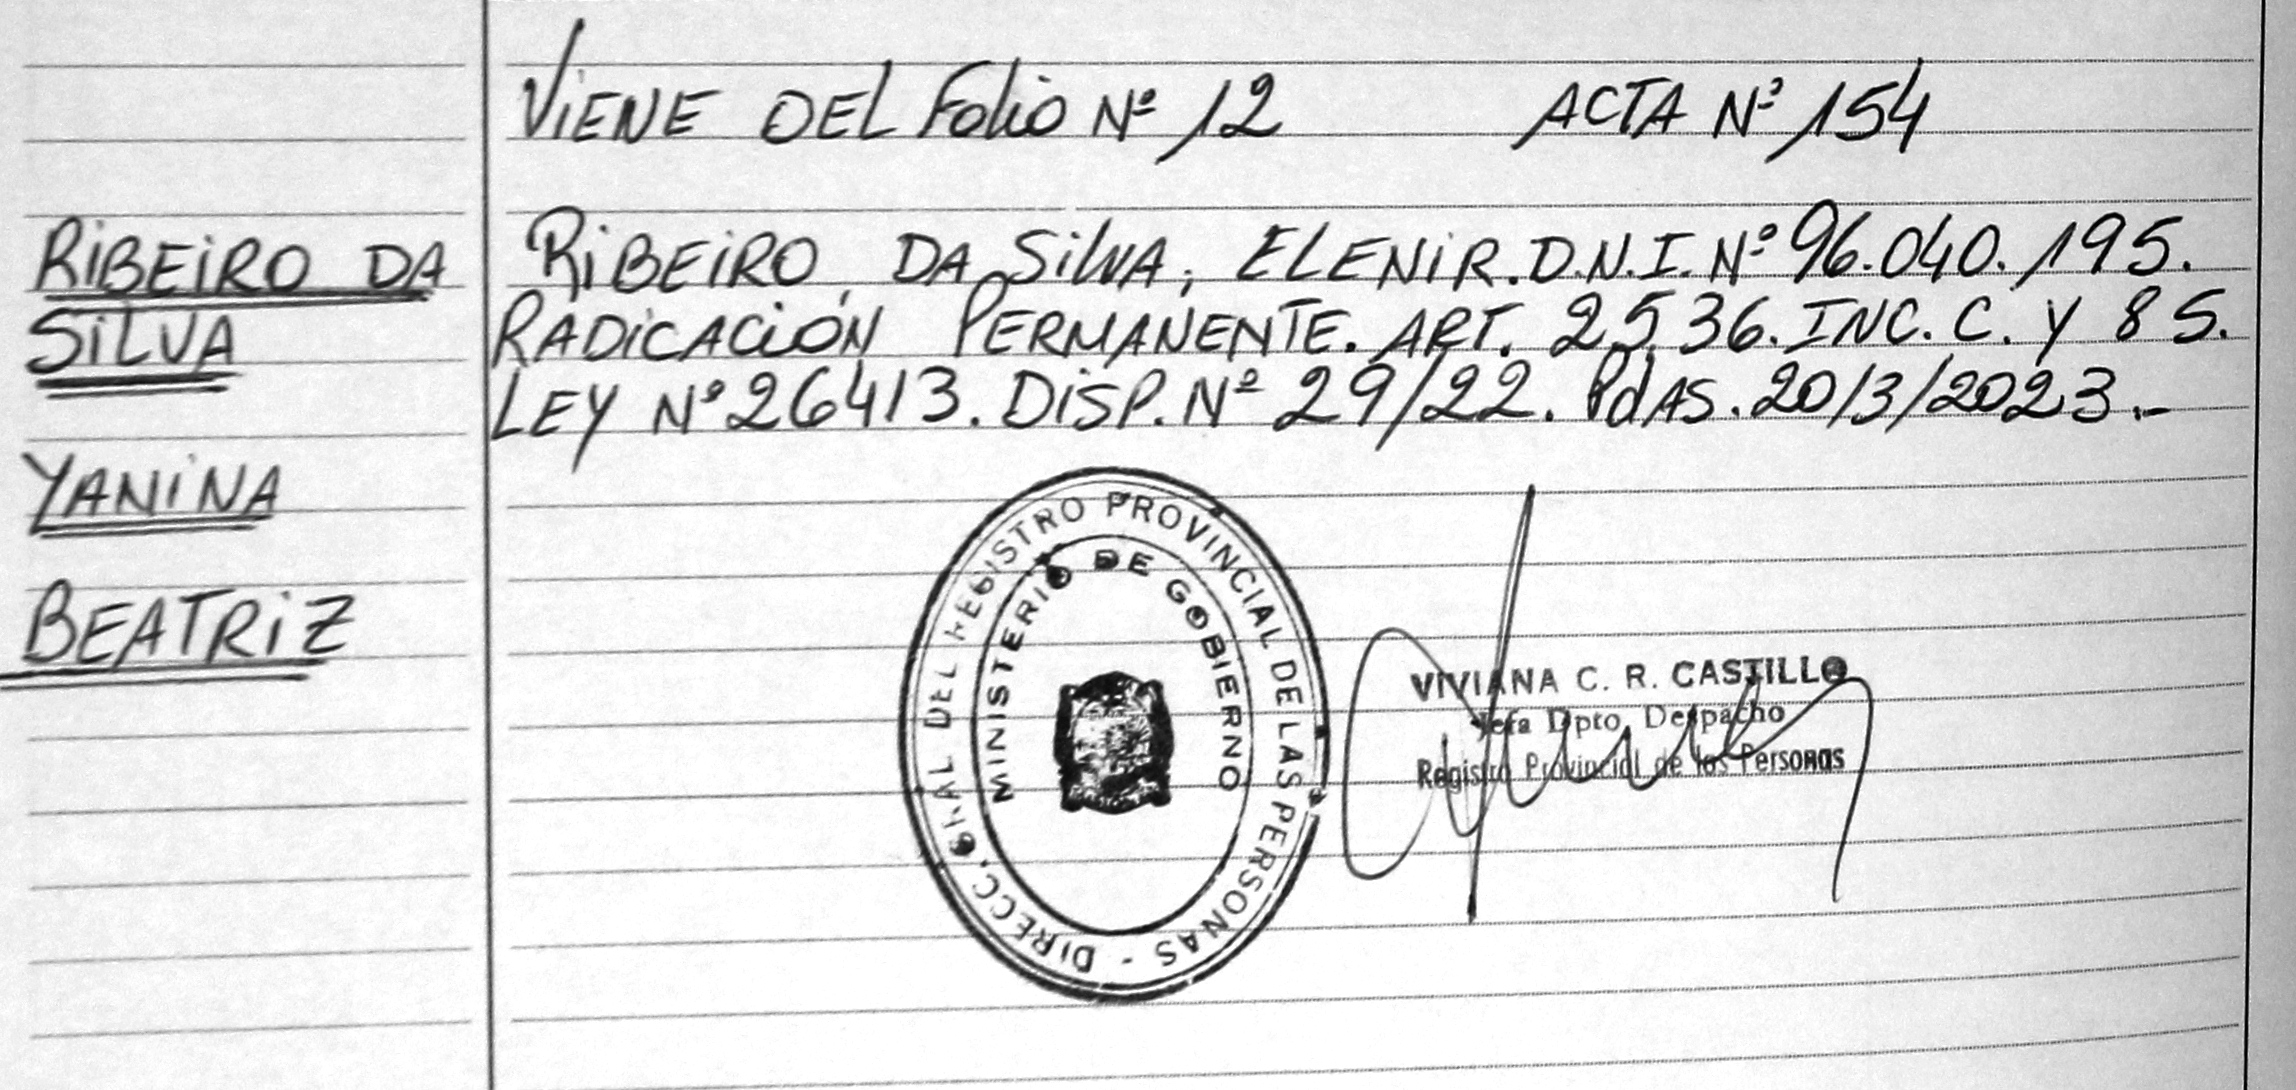 VIENE DEL Folio Nº 12 ACTA Nº 154
RIBEIRO DA
SILVA
YANINA
BEATRIZ
RIBEIRO, DA SILVA, ELENIR. D.N.I. Nº 96.040.195.
RADICACIÓN PERMANENTE. ART. 25, 36. INC. C. Y 85.
LEY Nº 26413. DISP. Nº 29/22. PdAS. 20/3/2023.-
DIRECC. GRAL DEL REGISTRO PROVINCIAL DE LAS PERSONAS -
MINISTERIO DE GOBIERNO
VIVIANA C. R. CASTILLO
Jefa Dpto. Despacho
Registro Provincial de las Personas